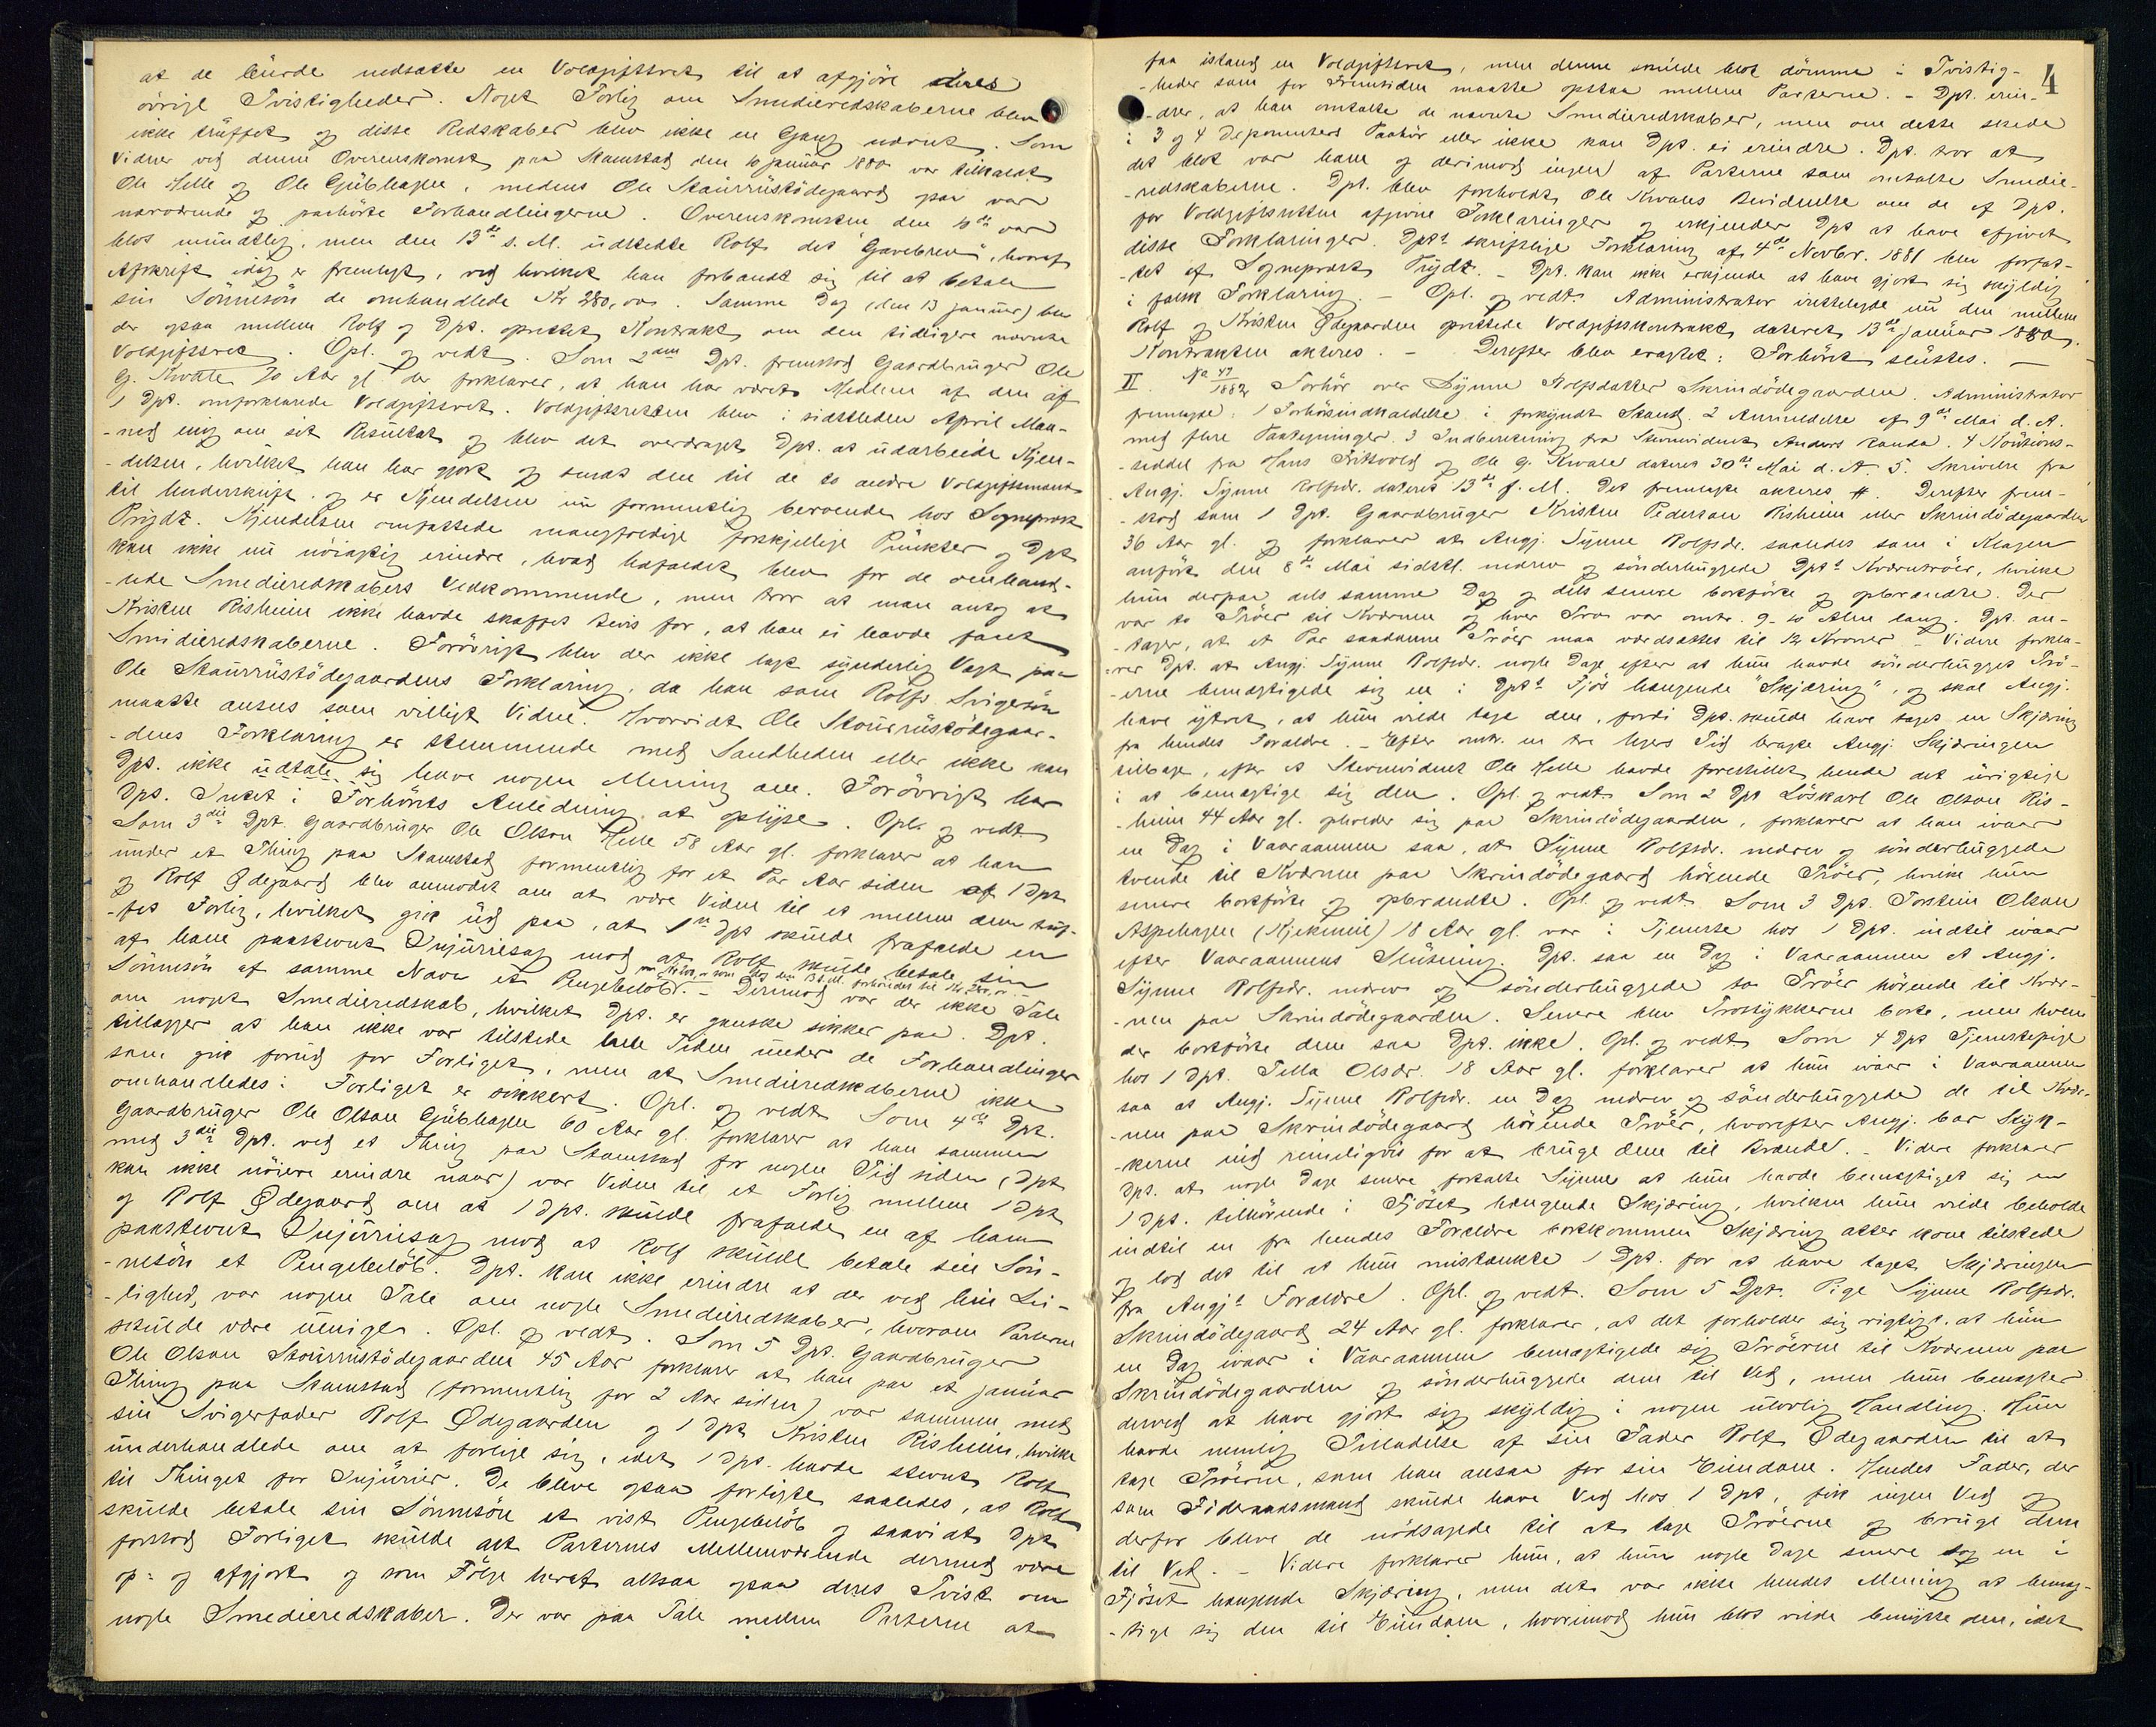 at de burde nedsætte en Voldgiftsret til at afgjöre deres
övrige Tvistigheder. Noget Forlig om Smedieredskaberne blev
ikke truffet og disse Redskaber blev ikke en Gang nævnt. Som
Vidner ved denne Overenskomst paa Stamstad den 10 Januar 1880 var tilkaldt
Ole Helle og Ole Gubhagen, medens Ole Staurrustödegaard ogsaa var
nærværende og paahörte Forhandlingerne. Overenskomsten den 10de var
blot mundtlig, men den 13de s. M. udstedte Rolf det "Gavebrev", hvoraf
Afskrift idag er fremlagt, ved hvilket han forbandt sig til at betale
sin Sönnesön de omhandlede Kr 280,00. Samme Dag (den 13 Januar) blev
der ogsaa mellem Rolf og Dpt. oprettet Kontrakt om den tidligere nævnte
Voldgiftsret. Opl. og vedt. Som 2den Dpt. fremstod Gaardbruger Ole
G. Kvale 70 Aar gl. der forklarer, at han har været Medlem af den af
1 Dpt. omforklarede Voldgiftsret. Voldgiftsretten blev i sidstleden April Maa-
-ned enig om sit Resultat og blev det overdraget Dpt. at udarbeide Kjen-
-delsen, hvilket han har gjort og sendt den til de to andre Voldgiftsmænd
til Underskrift og er Kjendelsen nu formentlig beroende hos Sogneprest
Prydz. Kjendelsen omfattede mangfoldige forskjellige Punkter og Dpt
kan ikke nu nöiagtig erindre, hvad Udfaldet blev for de omhand-
-lede Smedieredskabers Vedkommende, men tror at man antog at
Kristen Risheim ikke havde skaffet Bevis for, at han ei havde faaet
Smidieredskaberne. Forövrigt blev der ikke lagt synderlig Vægt paa
Ole Staurrustödegaardens Forklaring, da han som Rolfs Svigersön
maatte ansees som villigt Vidne. Hvorvidt Ole Staurrustödegaar-
-dens Forklaring er stemmende med Sandheden eller ikke kan
Dpt. ikke udtale sig have nogen Mening om. Forövrigt har
Dpt. Intet i Forhörets Anledning at oplyse. Opl. og vedt
Som 3die Dpt. Gaardbruger Ole Olsen Helle 58 Aar gl. forklarer at han
under et Thing paa Stamstad formentlig for et Par Aar siden af 1 Dpt
og Rolf Ödegaard blev anmodet om at være Vidne til et mellem dem truf-
-fet Forlig, hvilket gik ud paa, at 1ste Dpt skulde frafalde en
af ham paastevnt Injuriesag mod at Rolf skulde betale sin
Sönnesön af samme Navn et Pengebelöb. – Derimod var der ikke Tale
om noget Smedieredskab, hvilket Dpt. er ganske sikker paa. Dpt.
tillægger at han ikke var tilstede hele Tiden under de Forhandlinger
som gik forud for Forliget, men at Smedieredskaberne ikke
omhandledes i Forliget er sikkert. Opl. og vedt Som 4de Dpt.
Gaardbruger Ole Olsen Gubhagen 60 Aar gl. forklarer at han sammen
med 3die Dpt. ved et Thing paa Stamstad for nogen Tid siden (Dpt
kan ikke nöiere erindre naar) var Vidne til et Forlig mellem 1 Dpt
og Rolf Ødegaard om at 1 Dpt. skulde frafalde en af ham
paastevnt Injuriesag mod at Rolf skulde betale sin Sön-
-nesön et Pengebelöb. Dpt. kan ikke erindre at der ved hin Lei-
-lighed, var nogen Tale om nogle Smedieredskaber, hvorom Parterne
skulde være uenige. Opl. og vedt. Som 5 Dpt. Gaardbruger
Ole Olsen Staurrustödegaarden 45 Aar forklarer at han paa et Januar
Thing paa Stamstad (formentlig for 2 Aar siden) var sammen med
sin Svigerfader Rolf Ødegaarden og 1 Dpt Kristen Risheim, hvilke
underhandlede om at forlige sig, idet 1 Dpt. havde stevnt Rolf
til Thinget for Injurier. De bleve ogsaa forligte saaledes, at Rolf
skulde betale sin Sönnesön et vist Pengebelöb og saavidt Dpt
forstod Forliget skulde alt Parternes Mellemværende dermed være
op- og afgjort og som Fölge heraf altsaa ogsaa deres Tvist om
nogle Smedieredskaber. Der var paa Tale mellem Parterne at
4
faa istand en Voldgiftsret, men denne skulde blot dömme i Tvistig-
-heder som for Fremtiden maatte opstaa mellem Parterne. – Dpt. erin-
-drer, at han omtalte de nævnte Smedieredskaber, men om dette skede
i 3 og 4 Deponenters Paahör eller ikke kan Dpt. ei erindre. Dpt. tror at
det blot var ham og derimod ingen af Parterne som omtalte Smedie-
-redskaberne. Dpt. blev foreholdt Ole Kvales Bevidnelse om de af Dpt.
for Voldgiftsretten afgivne Forklaringer og erkjender Dpt at have afgivet
disse Forklaringer. Dpts skriftlige Forklaring af 4de Novbr. 1881 blev forfat-
-tet af Sogneprest Prydz. – Dpt. kan ikke erkjende at have gjort sig skyldig
i falsk Forklaring. – Opl. og vedt. Administrator irettelagde nu den mellem
Rolf og Kristen Ødegaarden oprettede Voldgiftskontrakt dateret 13de Januar 1880.
Kontrakten akteres. – Derefter blev eragtet: Forhöret sluttes. –
II. No 47/1882 Forhör over Synne Rolfsdatter Skrindödegaarden. Administrator
fremlagde: 1 Forhörsindkaldelse i forkyndt Stand. 2 Anmeldelse af 9de Mai d. A.
med flere Paategninger. 3 Indberetning fra Stevnevidnet Anders Randa. 4 Notitions-
-seddel fra Hans Fritsvold og Ole G. Kvale dateret 30te Mai d. A. 5. Skrivelse fra
Angj. Synne Rolfsdr. dateret 13de f. M. Det fremlagte akteres. Derefter frem-
-stod som 1 Dpt. Gaardbruger Kristen Pedersen Risheim eller Skrindödegaarden
36 Aar gl. og forklarer at Angj. Synne Rolfsdr. saaledes som i Klagen
anfört den 8de Mai sidstl. nedrev og sönderhuggede Dpts Kværntröer, hvilke
hun derpaa dels samme Dag og dels senere bortförte og opbrændte. Der
var to Tröer til Kværnen og hver Tro var omtr. 9-10 Alen lang. Dpt. an-
-tager, at et Par saadanne Tröer maa værdsættes til 12 Kroner – Videre forkla-
-rer Dpt. at Angj. Synne Rolfsdr. nogle Dage efter at hun havde sönderhugget Trö-
-erne bemægtigede sig en i Dpts Fjös hængende "Skjæring", og skal Angj.
have ytret, at hun vilde tage den, fordi Dpt. skulde have taget en Skjæring
fra hendes Forældre. – Efter omtr. en tre Ugers Tid bragte Angj. Skjæringen
tilbage, efter at Stevnevidnet Ole Helle havde forestillet hende det urigtige
i at bemægtige sig den. Opl. og vedt. Som 2 Dpt Löskarl Ole Olsen Ris-
-heim 44 Aar gl. opholder sig paa Skrindödegaarden, forklarer at han ivaar
en Dag i Vaaraannen saa, at Synne Rolfsdr. nedrev og sönderhuggede
tvende til Kværnen paa Skrindödegaard hörende Tröer, hvilke hun
senere bortförte og opbrændte. Opl. og vedt. Som 3 Dpt. Torstein Olsen
Aspehagen (Kjekmie) 18 Aar gl. var i Tjeneste hos 1 Dpt. indtil ivaar
efter Vaaraannens Slutning. Dpt. saa en Dag i Vaaraannen at Angj.
Synne Rolfsdr. nedrev og sönderhuggede to Tröer hörende til Kvær-
-nen paa Skrindödegaarden. Senere blev Trostykkerne borte, men hvem
der bortförte dem saa Dpt. ikke. Opl. og vedt. Som 4 Dpt Tjenestepige
hos 1 Dpt. Tilla Olsdr. 18 Aar gl. forklarer at hun ivaar i Vaaraannen
saa at Angj. Synne Rolfsdr. en Dag nedrev og sönderhuggede de til Kvær-
-nen paa Skrindödegaard hörende Tröer, hvorefter Angj. bar Styk-
-kerne ind rimeligvis for at bruge dem til Brænde. – Videre forklarer
Dpt. at nogle Dage senere fortalte Synne at hun havde bemægtiget sig en
1 Dpt. tilhörende i Fjöset hængende Skjæring, hvilken hun vilde beholde
indtil en fra hendes Forældre bortkommen Skjæring atter kom tilstede
og lod det til at hun mistænkte 1 Dpt. for at have taget Skjæringen
fra Angjs Forældre. Opl. og vedt. Som 5 Dpt. Pige Synne Rolfsdr.
Skrindödegaard 24 Aar gl. forklarer, at det forholder sig rigtigt, at hun
en Dag ivaar i Vaaraannen bemægtigede sig Tröerne til Kværnen paa
Skrindödegaarden og sönderhuggede dem til Ved, men hun benægter
derved at have gjort sig skyldig i nogen ulovlig Handling. Hun
havde nemlig Tilladelse af sin Fader Rolf Ødegaarden til at
tage Tröerne, som han ansaa for sin Eiendom. Hendes Fader, der
som Föderaadsmand skulde have Ved hos 1 Dpt, fik ingen Ved og
derfor bleve de nödsagede til at tage Tröerne og bruge dem
til Ved. – Videre forklarer hun, at hun nogle Dage senere tog en i
Fjöset hængende Skjæring, men det var ikke hendes Mening at bemæg-
-tige sig den til Eiendom, hvorimod hun blot vilde benytte den, idet